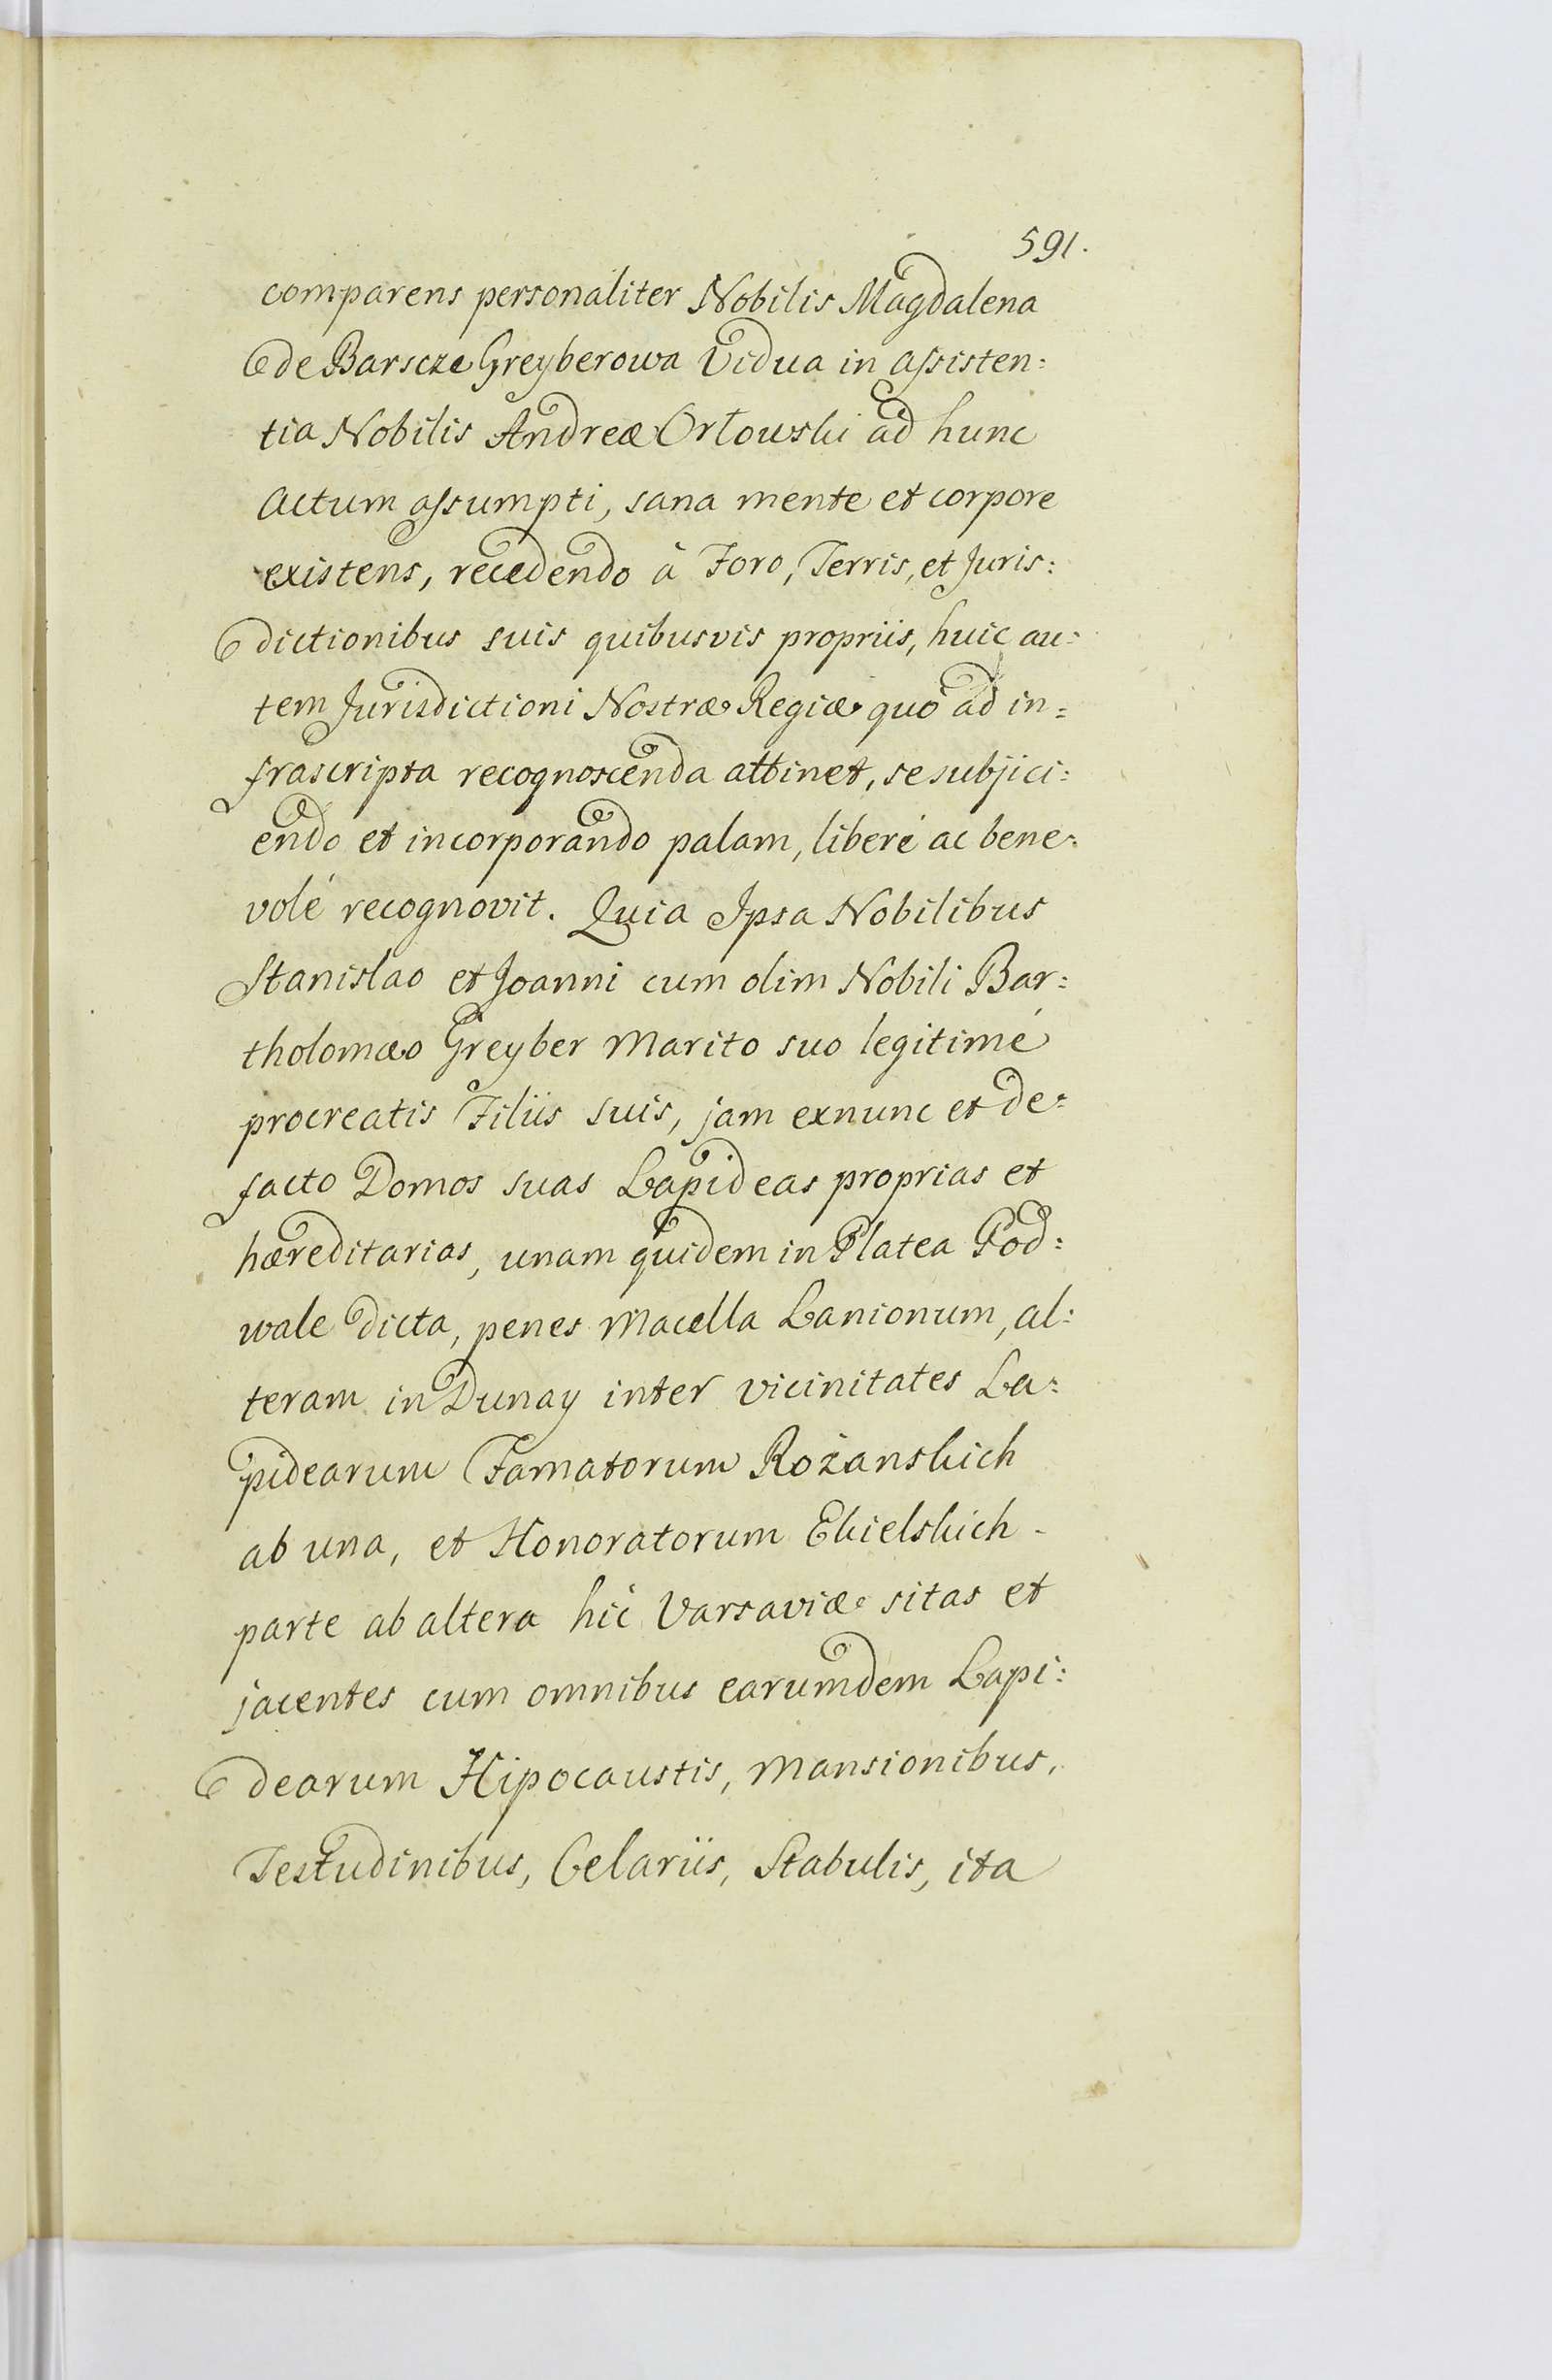 591.
comparens personaliter Nobilis Magdalena
de Barscze Greyberowa Vidua in assisten:
tia Nobilis Andreæ Orłowski ad hunc
Actum assumpti, sana mente et corpore
existens, recedendo à Foro, Terris, et Juris:
dictionibus suis quibusvis propriis, huic au:
tem Jurisdictioni Nostræ Regiæ quo ad in:
frascripta recognoscenda attinet, se subjici:
endo et incorporando palam, liberé ac bene:
volé recognovit. Quia Ipsa Nobilibus
Stanislao et Joanni cum olim Nobili Bar:
tholomæo Greyber Marito suo legitimé
procreatis Filiis suis, jam exnunc et de:
facto Domos suas Lapideas proprias et
hæreditarias, unam quidem in Platea Pod:
wale dicta, penes Macella Lanionum, al:
teram in Dunay inter vicinitates La:
pidearum Famatorum Rożanskich
ab una, et Honoratorum Ekielskich
parte ab altera hic Varsaviæ sitas et
jacentes cum omnibus earumdem Lapi:
dearum Hipocaustis, Mansionibus,
Testudinibus, Celariis, Stabulis, ita